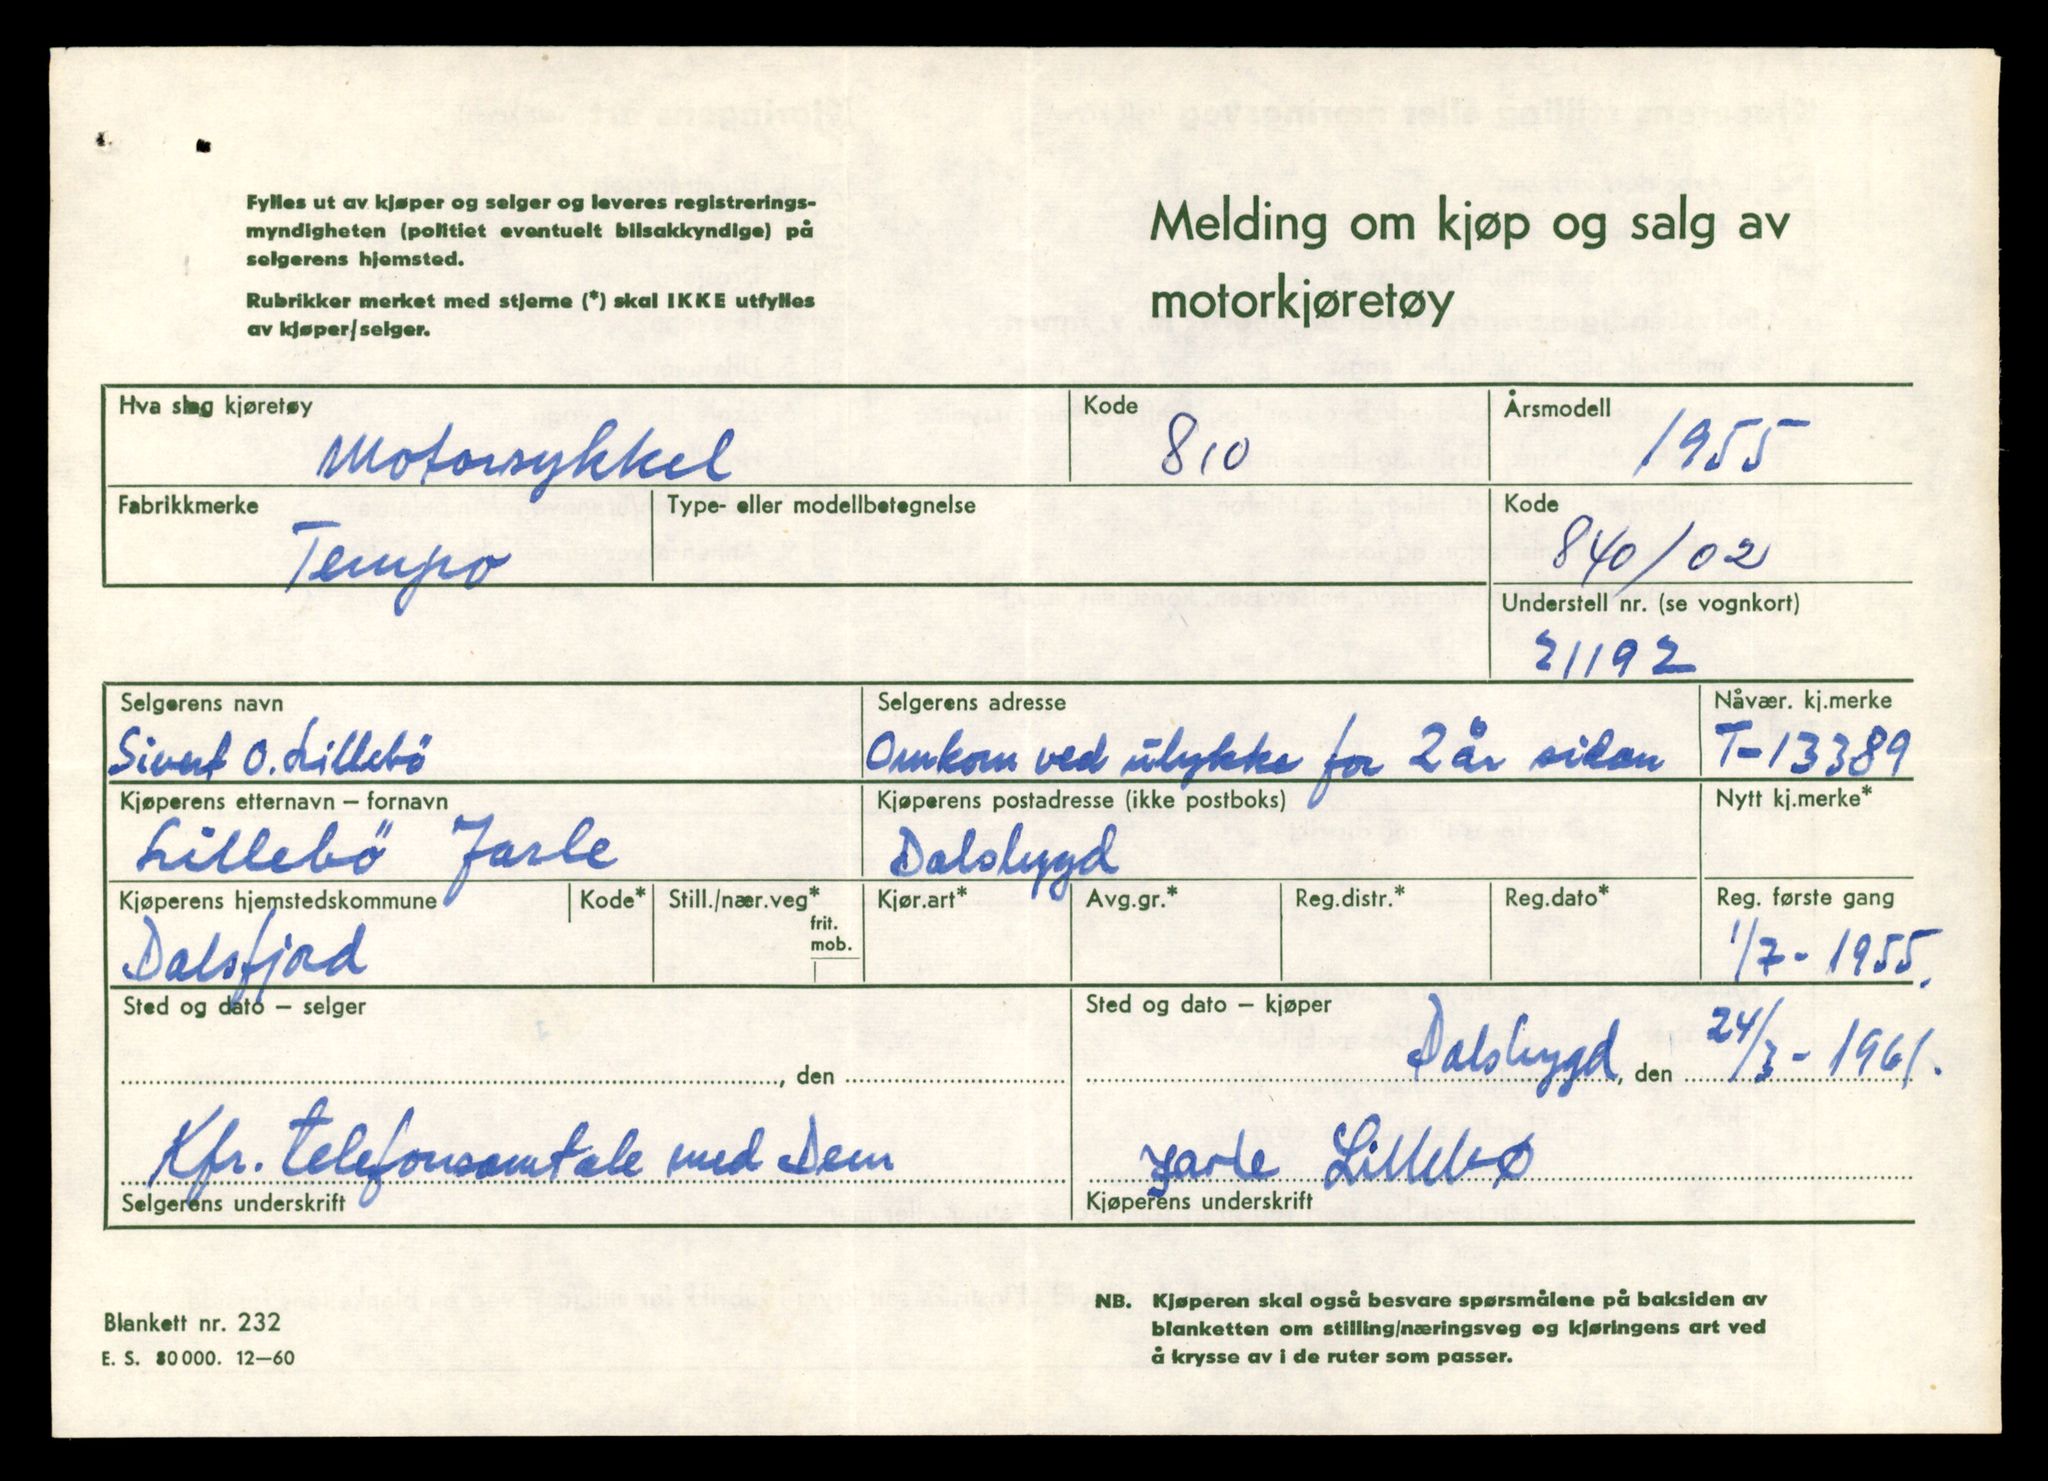 Fylles ut av kjøper og selger og leveres registrerings-
myndigheten (politiet eventuelt bilsakkyndige) på
selgerens hjemsted.
Rubrikker merket med stjerne (*) skal IKKE utfylles
av kjøper/selger.
Melding om kjøp og salg av
motorkjøretøy
Hva slag kjøretøy
Motorsykkel
Kode
810
Årsmodell
1955
Fabrikkmerke
Tempo
Type- eller modellbetegnelse
Kode
840/02
Understell nr. (se vognkort)
21192
Selgerens navn
Sivert O. Lillebö
Selgerens adresse
Omkom ved ulykke for 2 år sidan
Nåvær. kj.merke
T-13389
Kjøperens etternavn – fornavn
Lillebö Jarle
Kjøperens postadresse (ikke postboks)
Dalsbygd
Nytt kj.merke*
Kjøperens hjemstedskommune
Dalsfjord
Kode*
Still./nær.veg*
frit.
mob.
Kjør.art*
Avg.gr.*
Reg.distr.*
Reg.dato*
Reg. første gang
1/7 - 1955.
Sted og dato – selger
, den
Kfr. telefonsamtale med Dem
Selgerens underskrift
Sted og dato – kjøper
Dalsbygd, den 24/3 - 1961.
Jarle Lillebø
Kjøperens underskrift
Blankett nr. 232
E. S. 80 000. 12–60
NB. Kjøperen skal også besvare spørsmålene på baksiden av
blanketten om stilling/næringsveg og kjøringens art ved
å krysse av i de ruter som passer.